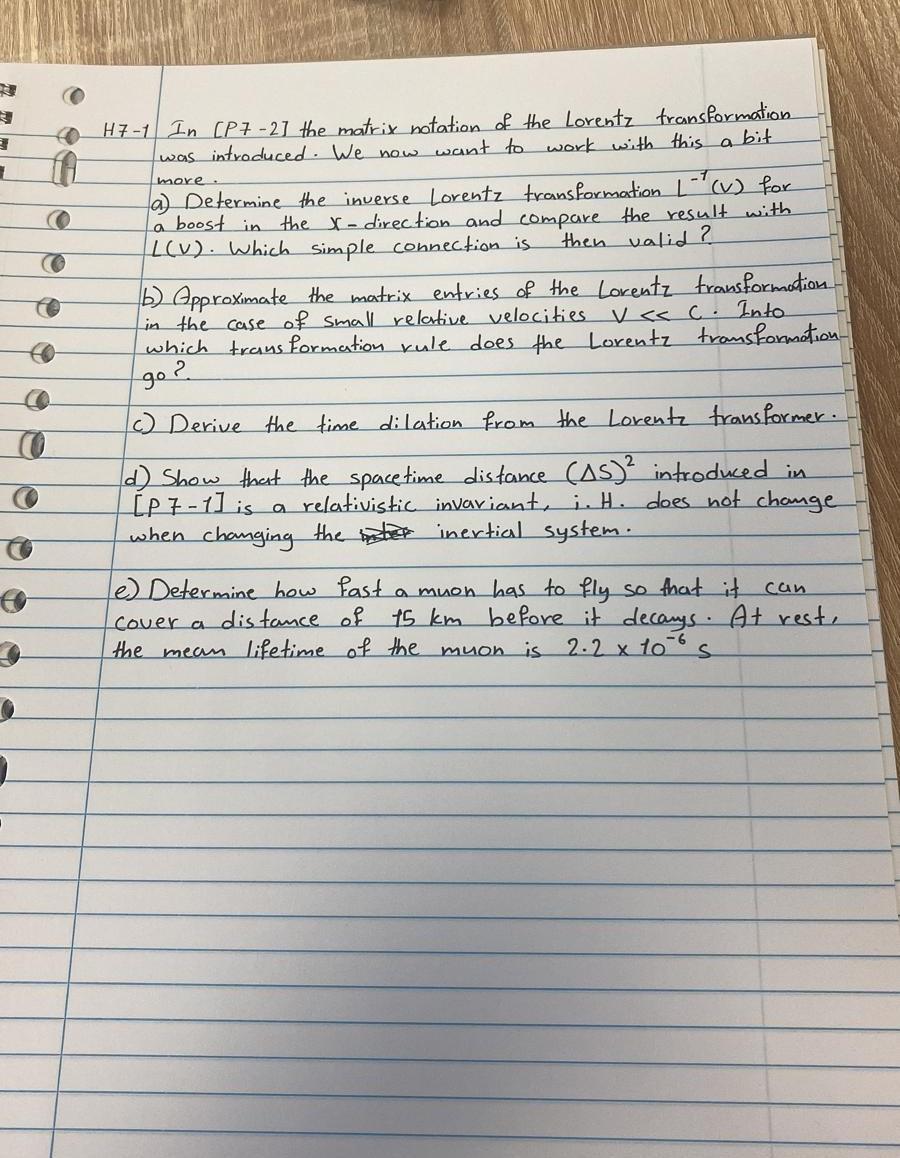 H7-1 In [P7-2] the matrix notation of the Lorentz transformation
was introduced. We now want to work with this a bit
more.
a) Determine the inverse Lorentz transformation L⁻¹(V) for
a boost in the x-direction and compare the result with
L(V). Which simple connection is then valid?
b) Approximate the matrix entries of the Lorentz transformation
in the case of small relative velocities V << C. Into
which transformation rule does the Lorentz transformation
go?
c) Derive the time dilation from the Lorentz transformer.
d) Show that the spacetime distance (ΔS)² introduced in
[P7-1] is a relativistic invariant, i.H. does not change
when changing the inertial system.
e) Determine how fast a muon has to fly so that it can
cover a distance of 15 km before it decays. At rest,
the mean lifetime of the muon is 2.2 x 10⁻⁶ s